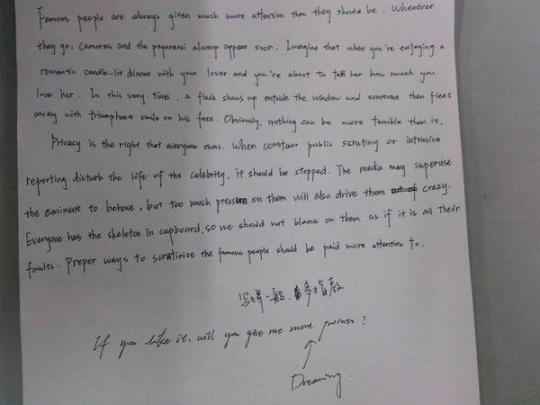 Famous people are always given much more attention than they should be. Whenever
they go, cameras and the paparazzi always appear soon. Imagine that when you're enjoying a
romantic candle-lit dinner with your lover and you're about to tell her how much you
love her. In this very time, a flash shows up outside the window and someone then flees
away with triumphant smile on his face. Obviously, nothing can be more terrible than it.
Privacy is the right that everyone owns. When constant public scrutiny or intrusive
reporting disturb the life of the celebrity, it should be stopped. The media may supervise
the eminent to behave, but too much pressure on them will also drive them crazy.
Everyone has the skeleton in cupboard, so we should not blame on them as if it is all their
faults. Proper ways to scrutinize the famous people should be paid more attention to.
写得一般、多多指教
If you like it, will you give me more points?
Dreaming.